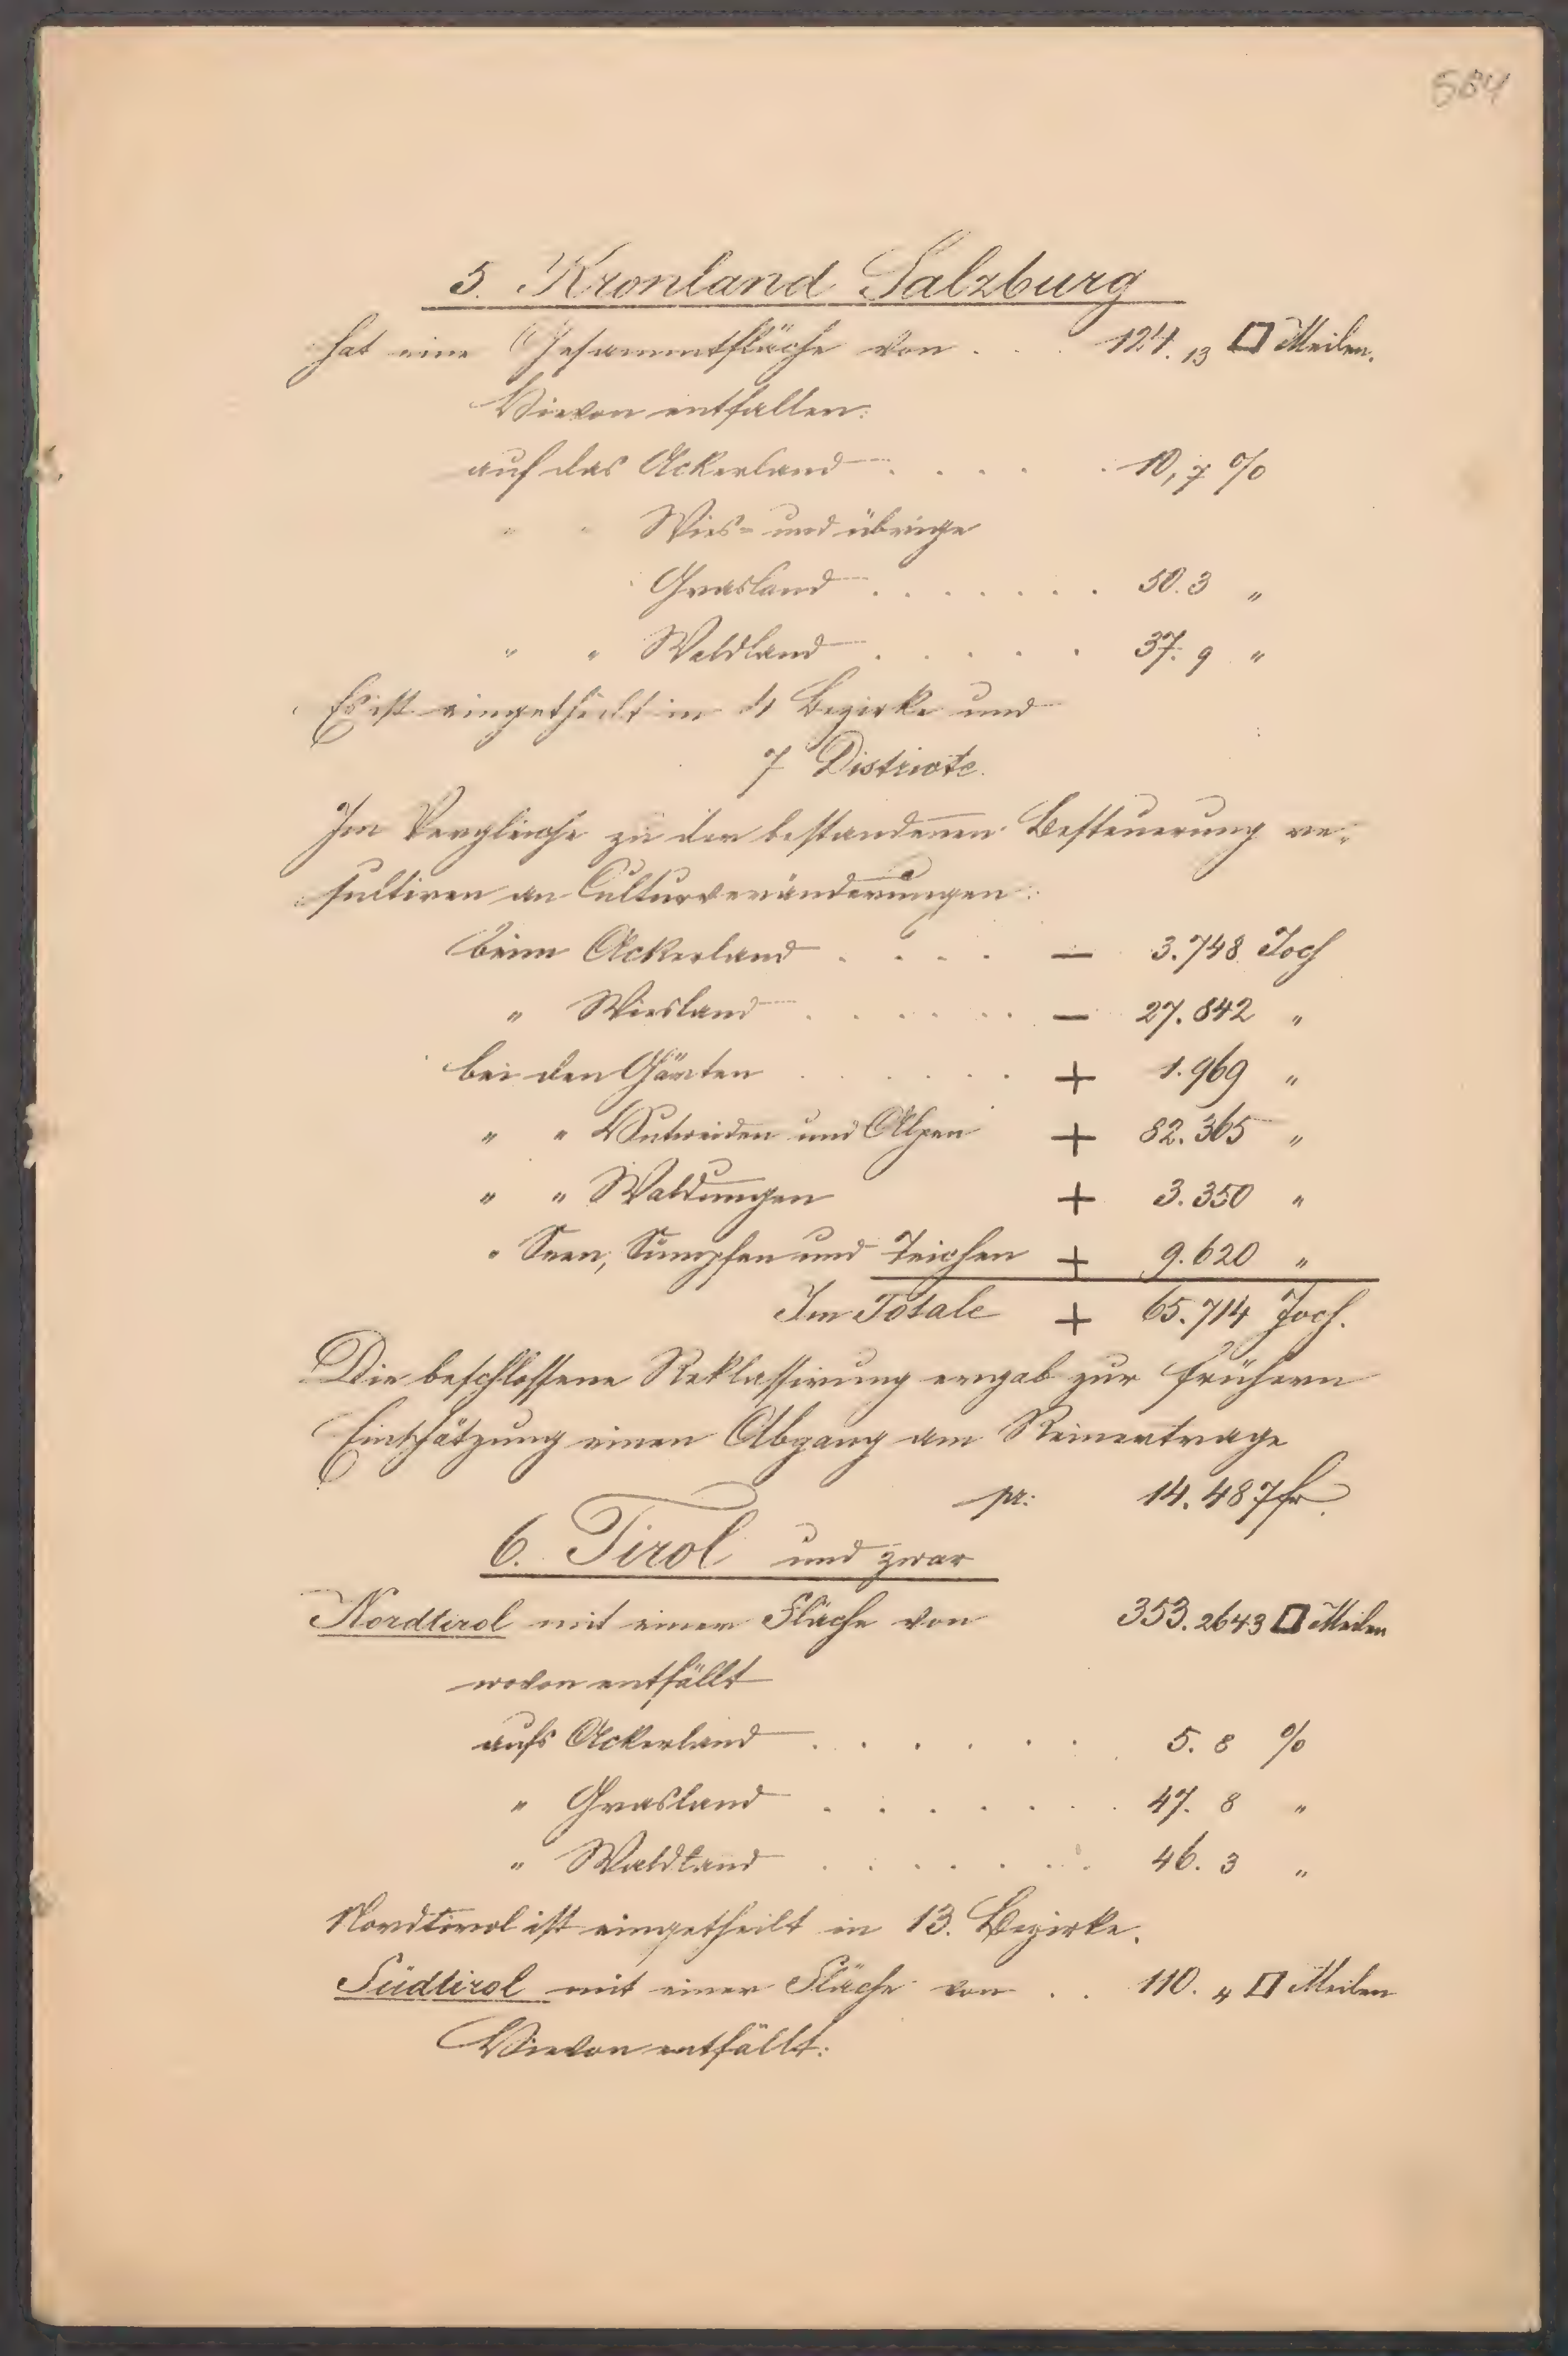 584
5. Kronland Salzburg
hat eine Gesammtfläche von . . . 124.13 □ Meilen.
Hievon entfallen:
auf das Ackerland . . . . . 10,7 %
" " Wies- und übrige
Grasland . . . . . . . 50.3 "
" " Waldland . . . . . 37.9 "
Es ist eingetheilt in 4 Bezirke und
7 Districte.
Im Vergleiche zu der bestandenen Besteuerung re-
sultiren an Culturveränderungen:
beim Ackerland . . . . — 3.748 Joch
" Wiesland . . . . . . — 27.842 "
bei den Gärten . . . . . . + 1.969 "
" " Hutweiden und Alpen + 82.365 "
" " Waldungen + 3.350 "
" Seen, Sümpfen und Teichen + 9.620 "
Im Totale + 65.714 Joch.
Die beschlossene Reklassirung ergab zur frühern
Einschätzung einen Abgang am Reinertrage
pr: 14.487 fr.
6. Tirol und zwar
Nordtirol mit einer Fläche von 353.2643 □ Meilen
wovon entfällt
aufs Ackerland . . . . . . 5.8 %
" Grasland . . . . . . . 47.8 "
" Waldland . . . . . . . 46.3 "
Nordtirol ist eingetheilt in 13. Bezirke.
Südtirol mit einer Fläche von . . 110.4 □ Meilen
Hievon entfällt: